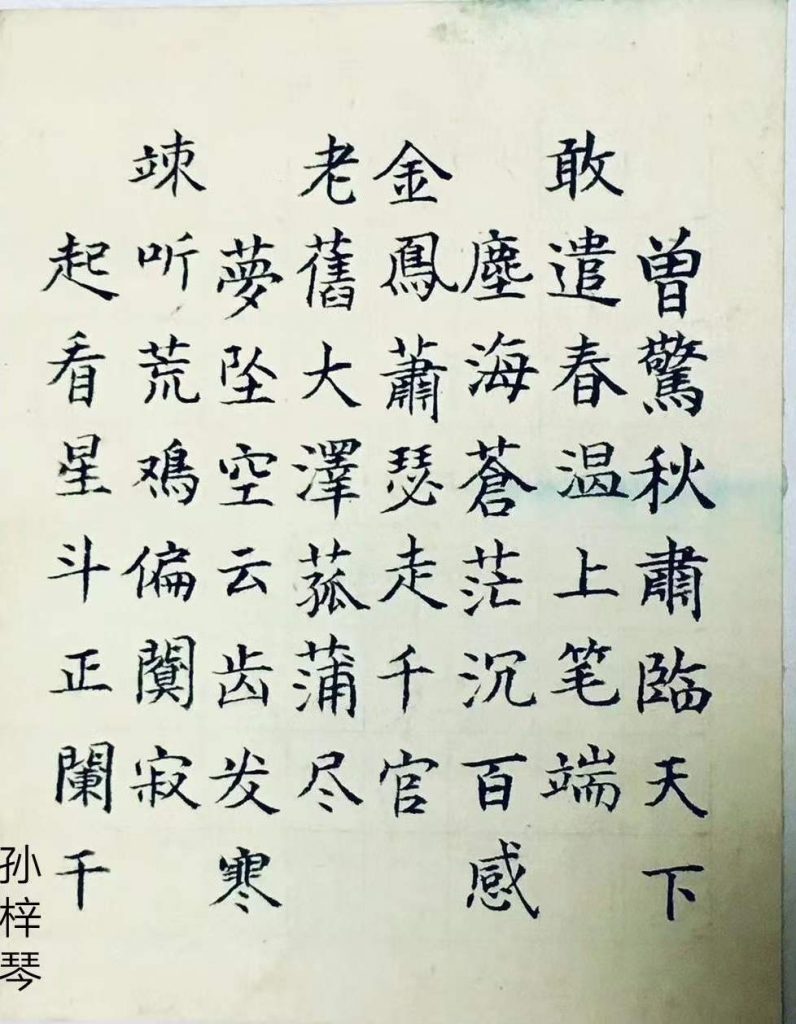 曾驚秋肅臨天下
敢遣春温上笔端
塵海蒼茫沉百感
金鳳蕭瑟走千官
老舊大澤菰蒲尽
夢坠空云齿发寒
竦听荒鸡偏闃寂
起看星斗正闌千
孙梓琴